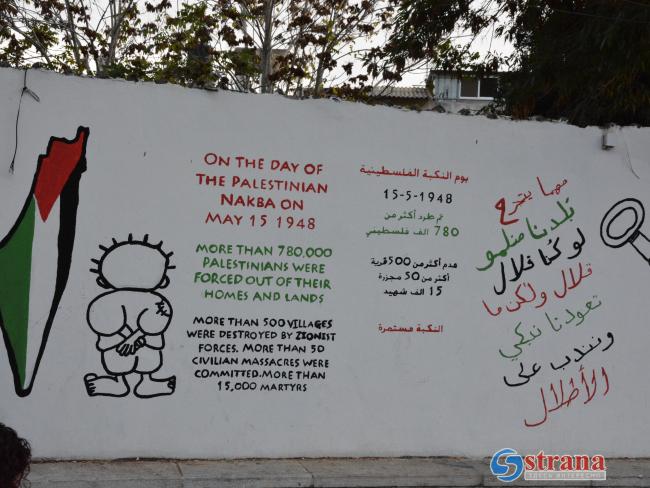 ON THE DAY OF
THE PALESTINIAN
NAKBA ON
MAY 15 1948
MORE THAN 780,000
PALESTINIANS WERE
FORCED OUT OF THEIR
HOMES AND LANDS
MORE THAN 500 VILLAGES
WERE DESTROYED BY ZIONIST
FORCES. MORE THAN 50
CIVILIAN MASSACRES WERE
COMMITTED.MORE THAN
15,000 MARTYRS
يوم النكبة الفلسطينية
15-5-1948
تم طرد أكثر من
780 الف فلسطيني
هدم أكثر من 500 قرية
أكثر من 50 مجزرة
15 الف شهيد
النكبة مستمرة
مهما
لو كنا قلال
قلال ولكن ما
تعودنا نبكي
ونندب على
الأطلال
strana